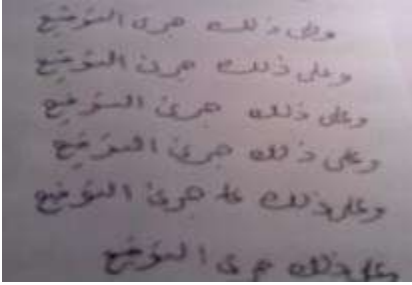 وعلى ذلك جرى التوقيع
وعلى ذلك جرى التوقيع
وعلى ذلك جرى التوقيع
وعلى ذلك جرى التوقيع
وعلى ذلك جرى التوقيع
وعلى ذلك جرى التوقيع